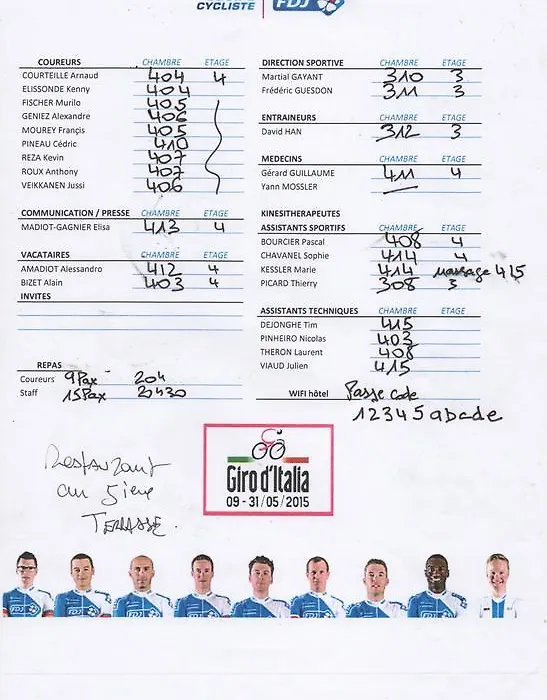 CYCLISTE FDJ
COUREURS CHAMBRE ETAGE
COURTEILLE Arnaud 404 4
ELISSONDE Kenny 404
FISCHER Murilo 405
GENIEZ Alexandre 406
MOUREY Françis 405
PINEAU Cédric 410
REZA Kevin 407
ROUX Anthony 407
VEIKKANEN Jussi 406
COMMUNICATION / PRESSE CHAMBRE ETAGE
MADIOT-GAGNIER Elisa 413 4
VACATAIRES CHAMBRE ETAGE
AMADIOT Alessandro 412 4
BIZET Alain 403 4
INVITES
REPAS
Coureurs 9Pax 20h
Staff 15Pax 20h30
DIRECTION SPORTIVE CHAMBRE ETAGE
Martial GAYANT 310 3
Frédéric GUESDON 311 3
ENTRAINEURS CHAMBRE ETAGE
David HAN 312 3
MEDECINS CHAMBRE ETAGE
Gérard GUILLAUME 411 4
Yann MOSSLER
KINESITHERAPEUTES
ASSISTANTS SPORTIFS CHAMBRE ETAGE
BOURCIER Pascal 408 4
CHAVANEL Sophie 414 4
KESSLER Marie 414 massage 415
PICARD Thierry 308 3
ASSISTANTS TECHNIQUES CHAMBRE ETAGE
DEJONGHE Tim 415
PINHEIRO Nicolas 403
THERON Laurent 408
VIAUD Julien 415
WIFI hôtel Passe code
12345abcde
Restaurant
au 5ieme
TERRASSE.
Giro d'Italia
09 - 31/05/2015
FDJ
FDJ
FDJ
FDJ